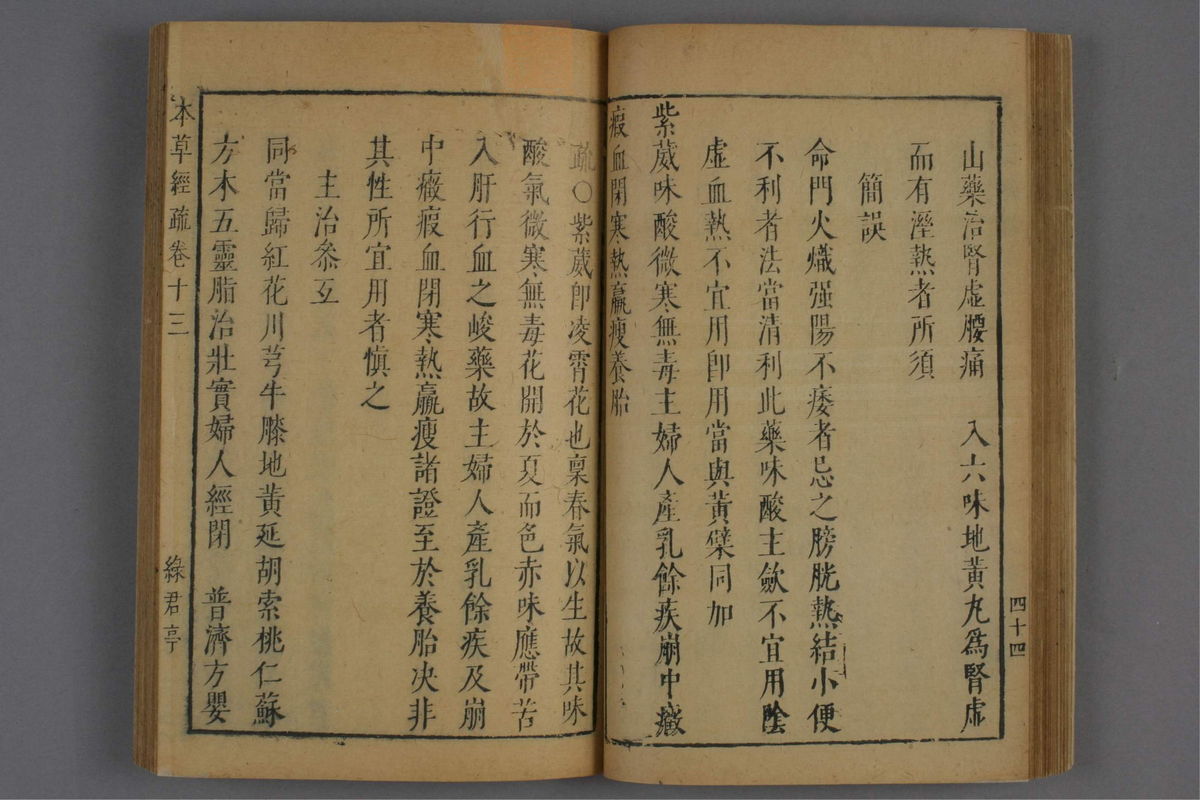 山藥治腎虛腰痛　入六味地黃丸爲腎虛
而有溼熱者所須
簡誤
命門火熾强陽不痿者忌之膀胱熱結小便
不利者法當清利此藥味酸主斂不宜用陰
虛血熱不宜用卽用當與黃檗同加
紫葳味酸微寒無毒主婦人產乳餘疾崩中癥
瘕血閉寒熱羸瘦養胎
四十四
疏〇紫葳卽凌霄花也稟春氣以生故其味
酸氣微寒無毒花開於夏而色赤味應帶苦
入肝行血之峻藥故主婦人產乳餘疾及崩
中癥瘕血閉寒熱羸瘦諸證至於養胎决非
其性所宜用者愼之
主治叅互
同當歸紅花川芎牛膝地黃延胡索桃仁蘇
方木五靈脂治壯實婦人經閉　普濟方嬰
本草經疏卷十三
綠君亭